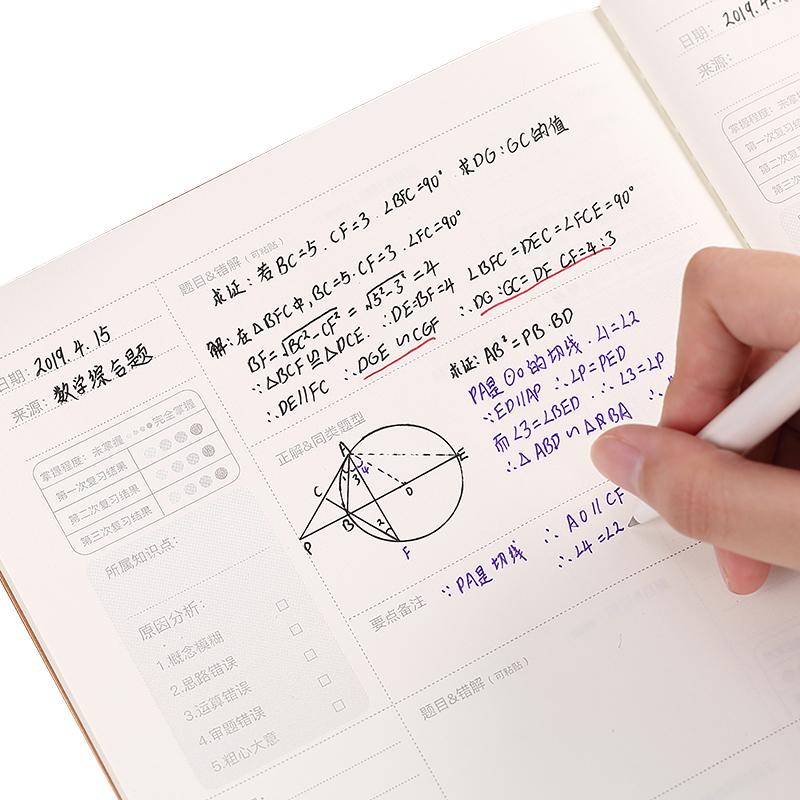 日期: 2019.4.15
来源: 数学综合题
掌握程度: 未掌握 完全掌握
第一次复习结果
第二次复习结果
第三次复习结果
所属知识点:
原因分析:
1.概念模糊
2.思路错误
3.运算错误
4.审题错误
5.粗心大意
题目&错解(可粘贴)
求证: 若BC=5. CF=3. ∠BFC=90° 求DG:GC的值
解: 在△BFC中, BC=5. CF=3. ∠FC=90°
BF=√BC²-CF² = √5²-3² = 4 ∠BFC=DEC=∠FCE=90°
∵△BCF≌△DCE. ∴DE=BF=4 ∴DG:GC=DF CF=4:3
∴DE//FC ∴DGE∽CGF
正解&同类题型
求证: AB²=PB.BD
PA是⊙O的切线. ∠1=∠2
∵ED//AP ∴∠P=PED
而∠3=∠BED ∴∠3=∠P
∴△ABD∽△RBA
A
C
B
P
D
E
F
1
2
3
4
要点备注
∵PA是切线 ∴AO//CF
∴∠4=∠2
题目&错解(可粘贴)
日期: 2019.4.
来源:
掌握程度: 未
第一次复习结
第二次复习结
第三